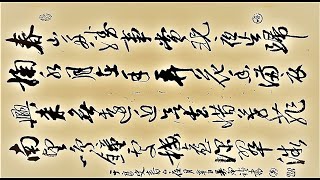 春山多勝事賞玩夜忘歸
掬水月在手弄花香滿衣
興來無遠近欲去惜芳菲
南望鳴鐘處樓臺深翠微